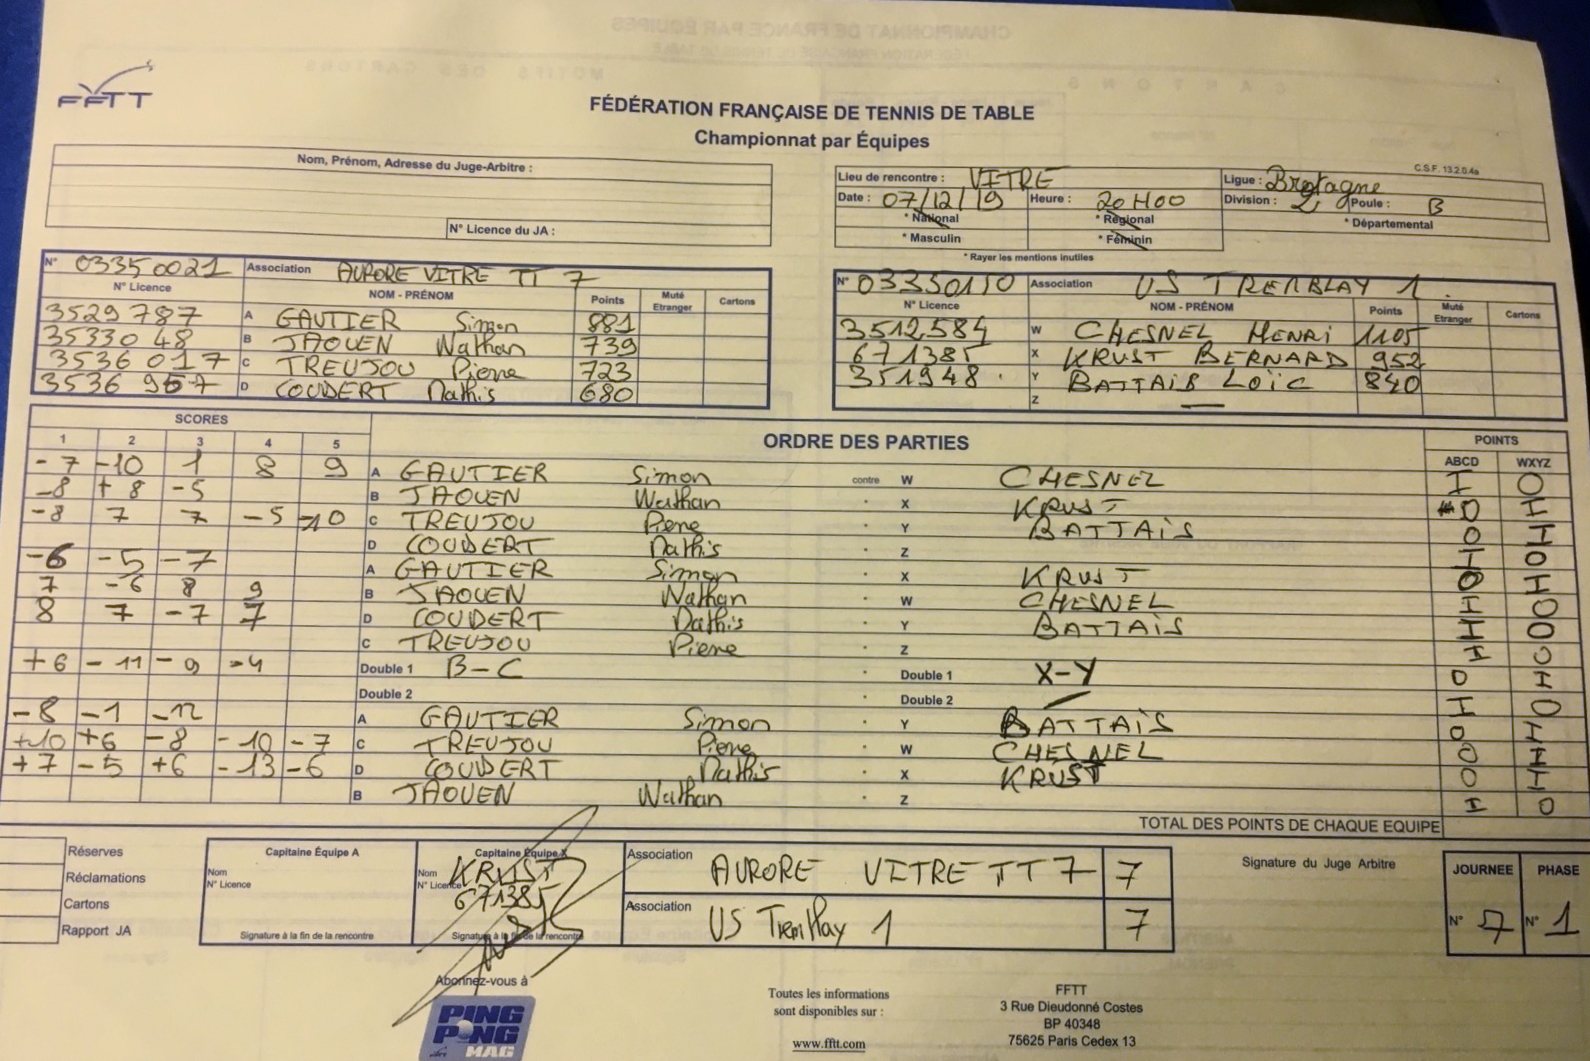 FFTT
FÉDÉRATION FRANÇAISE DE TENNIS DE TABLE
Championnat par Équipes
C.S.F. 13.2.0.4a
Nom, Prénom, Adresse du Juge-Arbitre :
N° Licence du JA :
Lieu de rencontre : VITRE
Ligue : Bretagne
Date : 07/12/19 Heure : 20H00
Division : 2 Poule : B
* National * Régional * Départemental
* Masculin * Féminin
* Rayer les mentions inutiles
N° 03350021 Association AURORE VITRE TT 7
N° Licence NOM - PRÉNOM Points Muté Etranger Cartons
3529787 A GAUTIER Simon 881
3533048 B JAOUEN Wathan 739
3536017 C TREUJOU Pierre 723
3536967 D COUDERT Mathis 680
N° 03350110 Association US TREMBLAY 1
N° Licence NOM - PRÉNOM Points Muté Etranger Cartons
3512584 W CHESNEL HENRI 1105
671385 X KRUST BERNARD 952
351948 Y BATTAIS LOÏC 840
Z
SCORES ORDRE DES PARTIES POINTS
1 2 3 4 5 ABCD WXYZ
-7 -10 1 8 9 A GAUTIER Simon contre W CHESNEL I O
-8 +8 -5 B JAOUEN Wathan X KRUST O I
-8 7 7 -5 -10 C TREUJOU Pierre Y BATTAIS O I
D COUDERT Mathis Z I O
-6 -5 -7 A GAUTIER Simon X KRUST O I
7 -6 8 9 B JAOUEN Wathan W CHESNEL I O
8 7 -7 7 D COUDERT Mathis Y BATTAIS I O
C TREUJOU Pierre Z I O
+6 -11 -9 -4 Double 1 B-C Double 1 X-Y O I
Double 2 Double 2 I O
-8 -1 -12 A GAUTIER Simon Y BATTAIS O I
+10 +6 -8 -10 -7 C TREUJOU Pierre W CHESNEL O I
+7 -5 +6 -13 -6 D COUDERT Mathis X KRUST O I
B JAOUEN Wathan Z I O
TOTAL DES POINTS DE CHAQUE EQUIPE
Réserves
Réclamations
Cartons
Rapport JA
Capitaine Équipe A
Nom
N° Licence
Signature à la fin de la rencontre
Capitaine Équipe X
Nom KRUST
N° Licence 671385
Signature à la fin de la rencontre
Association AURORE VITRE TT 7 7
Association US Tremblay 1 7
Signature du Juge Arbitre
JOURNEE PHASE
N° 7 N° 1
Abonnez-vous à
PING
PONG
MAG
Toutes les informations
sont disponibles sur :
www.fftt.com
FFTT
3 Rue Dieudonné Costes
BP 40348
75625 Paris Cedex 13